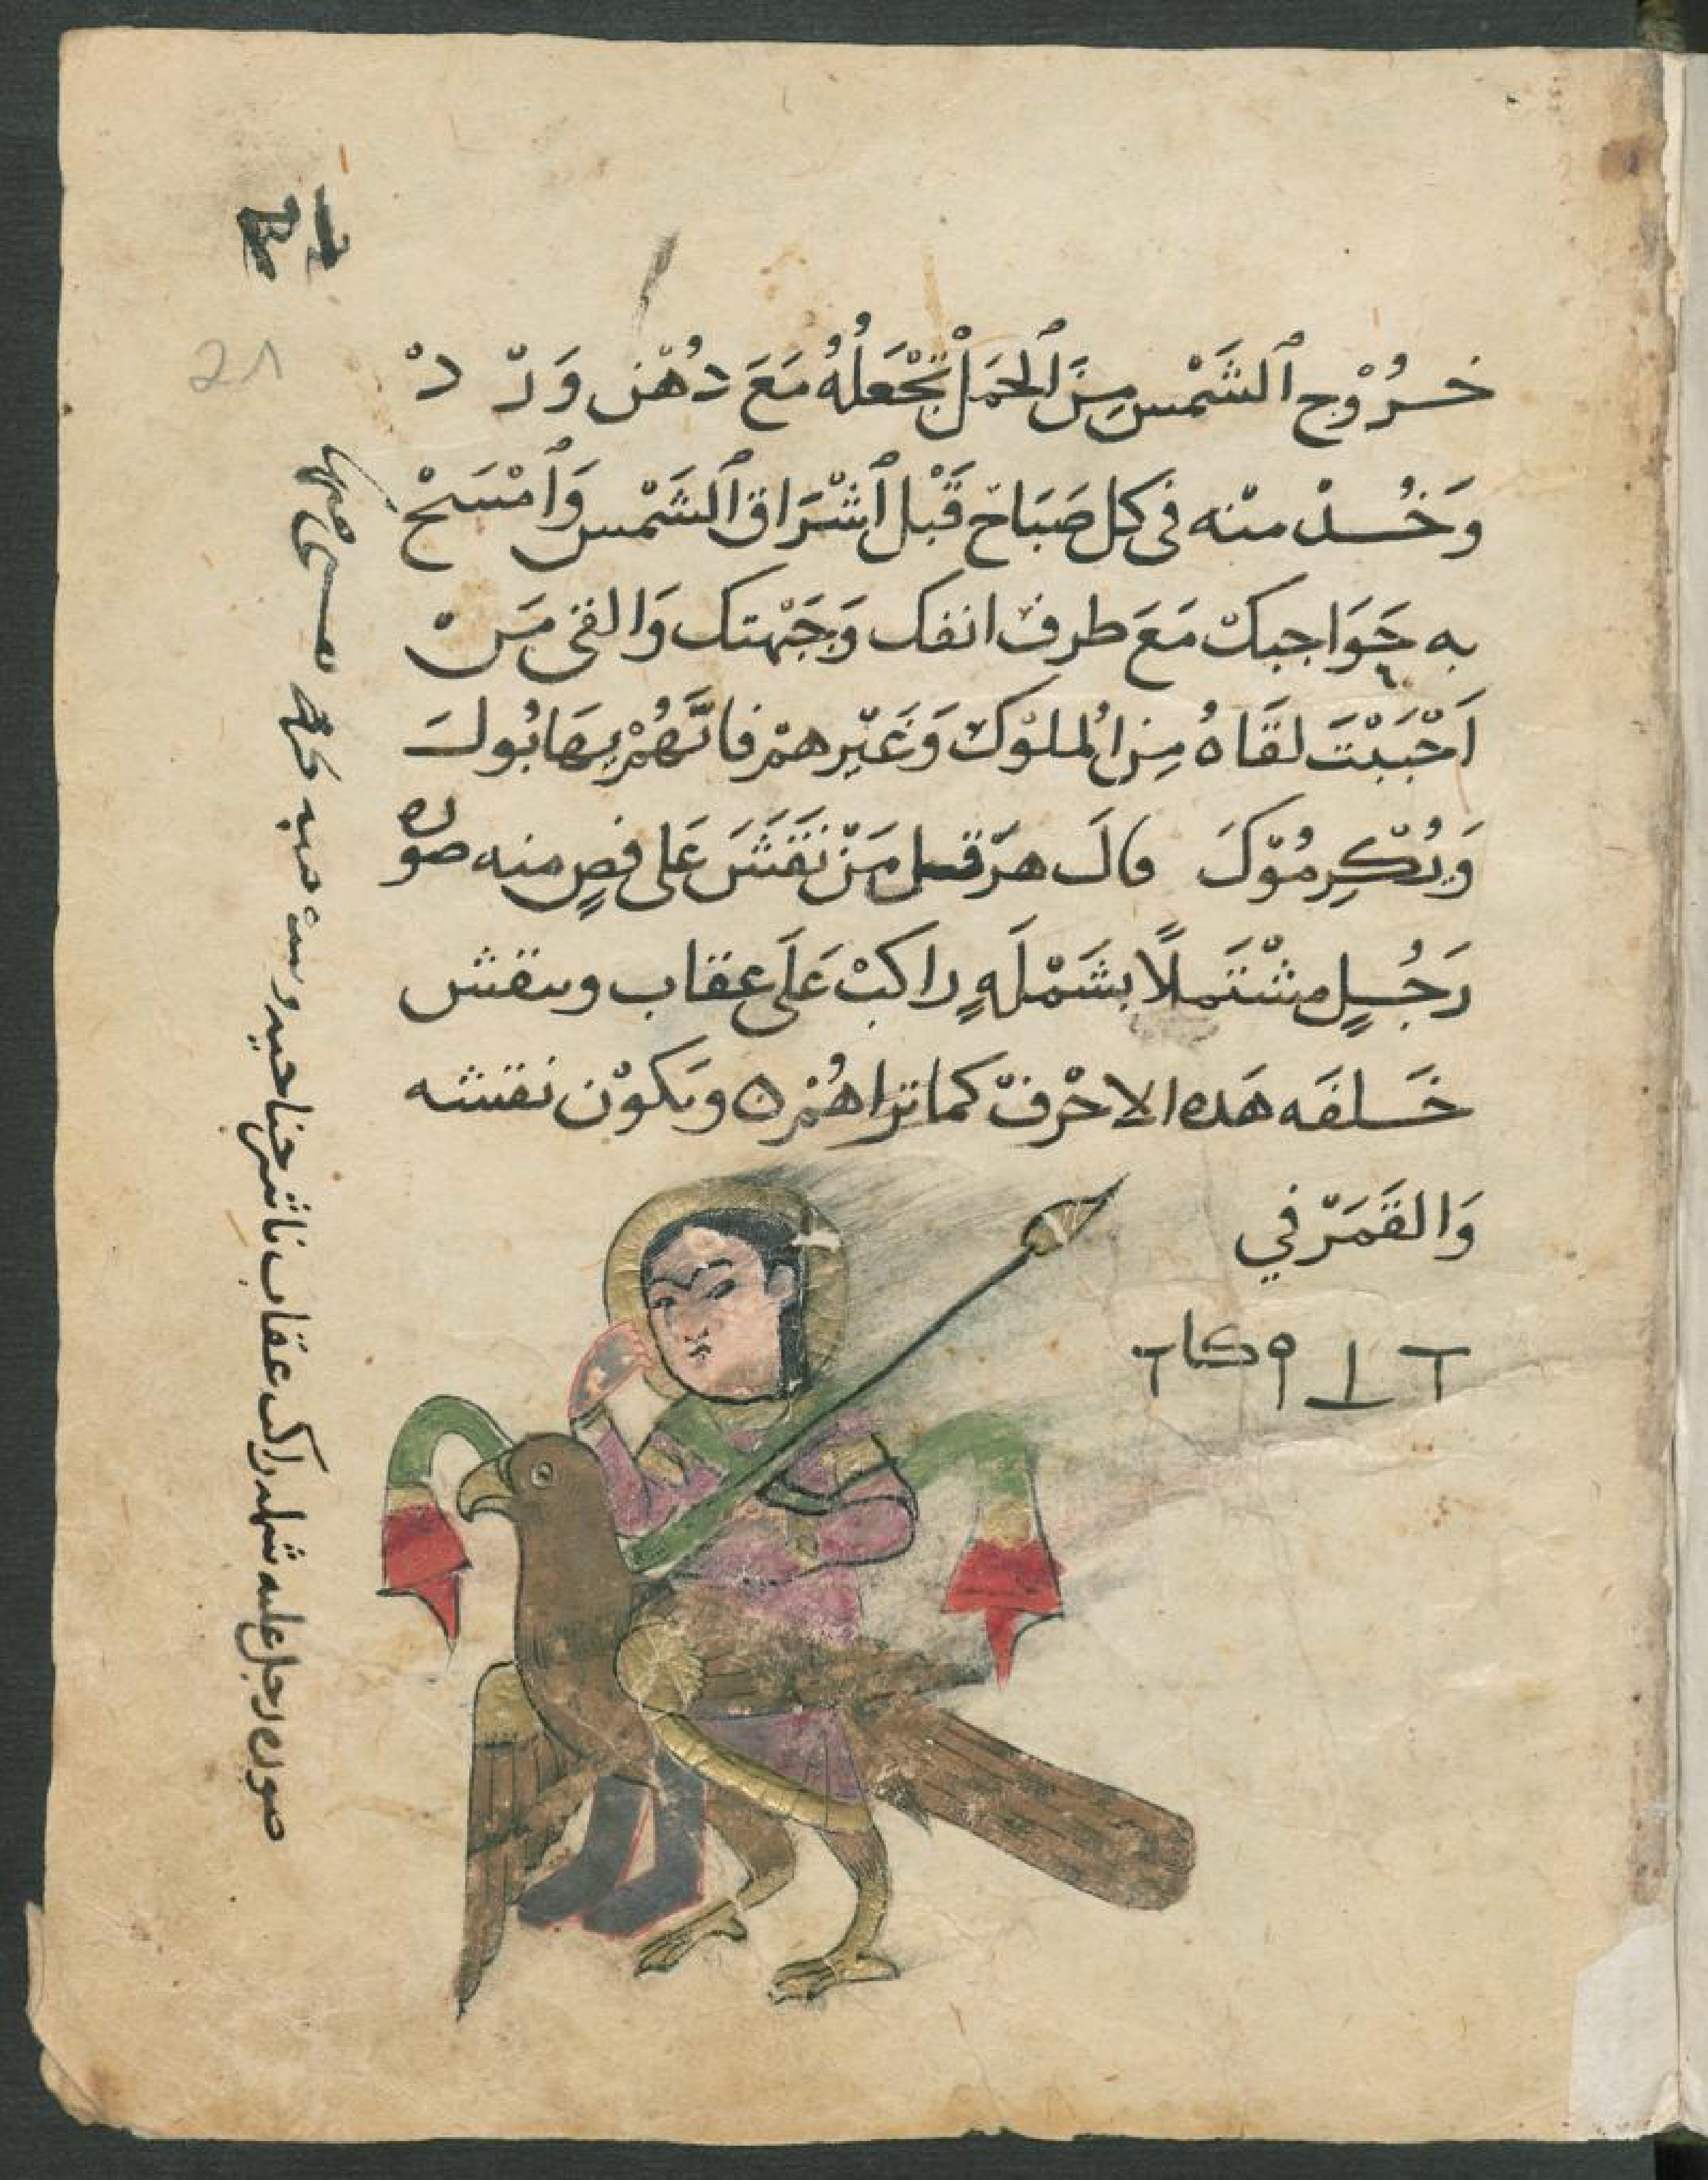 خُرُوْج ٱلشَّمْس مِنَ ٱلحَمَلْ تَجْعَلُهُ مَعَ دُهْن وَرْدْ
وَخُدْ منْه فى كل صَبَاح قَبْل ٱشْرَاق ٱلشَّمْس وَٱمْسَحْ
به حَوَاجبكْ مَعَ طرف انفك وَجَبْهتك وَالقى مَنْ
اَحْبَبْتَ لقَاهُ مِن اُلملوْك وَغَيْرهمْ فانَّهُمْ يهَابُوكَ
وَيُكْرِمُوْكَ قالَ هرْقل مَنْ نَقَشَ عَلى فصٍ منه صوره
رَجُلٍ مشْتَملًا بشَمْلَهٍ راكبْ عَلَى عقاب وينقش
خَلفَه هَده الاحْرفْ كما تراهُمْ ٥ ويكوْن نقشه
وَالقَمَرْ في
صوره رجل عليه شمله راكب عقاب ناشر جناحيه و